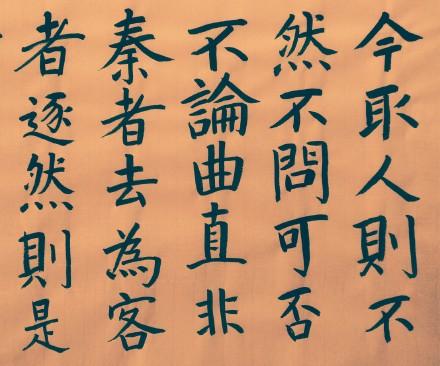 今取人則不
然不問可否
不論曲直非
秦者去為客
者逐然則是